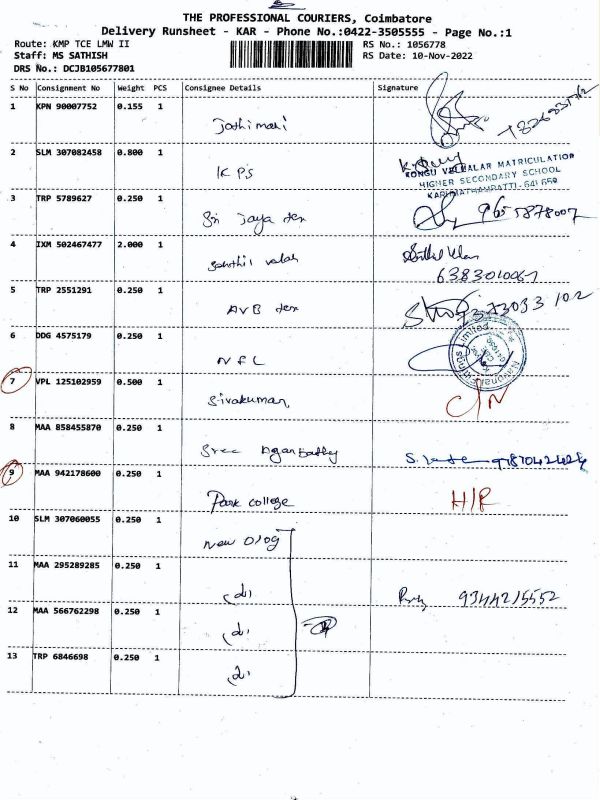 THE PROFESSIONAL COURIERS, Coimbatore
Delivery Runsheet - KAR - Phone No.:0422-3505555 - Page No.:1
Route: KMP TCE LMW II
RS No.: 1056778
Staff: MS SATHISH
RS Date: 10-Nov-2022
DRS No.: DCJB105677801
S No Consignment No Weight PCS Consignee Details Signature
1 KPN 90007752 0.155 1
Jothimani
2 SLM 307082458 0.800 1
KPS
KONGU VELLALAR MATRICULATION
HIGHER SECONDARY SCHOOL
KARUMATHAMPATTI - 641 659
3 TRP 5789627 0.250 1
Sri Jaya tex 9655878007
4 IXM 502467477 2.000 1
Senthil velan
6383010067
5 TRP 2551291 0.250 1
AVB tex 9373033102
6 DDG 4575179 0.250 1
NFL
7 VPL 125102959 0.500 1
Sivakumar C/N
8 MAA 858455870 0.250 1
Sree
9 MAA 942178600 0.250 1
Park college H/R
10 SLM 307060055 0.250 1
New
11 MAA 295289285 0.250 1
9344215552
12 MAA 566762298 0.250 1
13 TRP 6846698 0.250 1